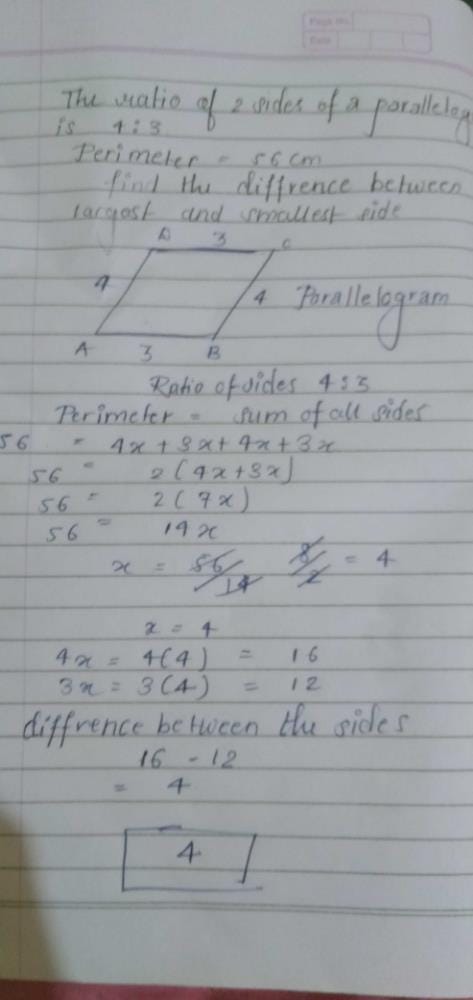 Page No.
Date
The ratio of 2 sides of a parallelog
is 4:3
Perimeter = 56cm
find the diffrence between
largest and smallest side
D 3 C
4 4 Parallelogram
A 3 B
Ratio of sides 4:3
Perimeter = sum of all sides
56 = 4x + 3x + 4x + 3x
56 = 2(4x+3x)
56 = 2(7x)
56 = 14x
x = 56/14 8/2 = 4
x = 4
4x = 4(4) = 16
3x = 3(4) = 12
diffrence between the sides
16 - 12
= 4
4